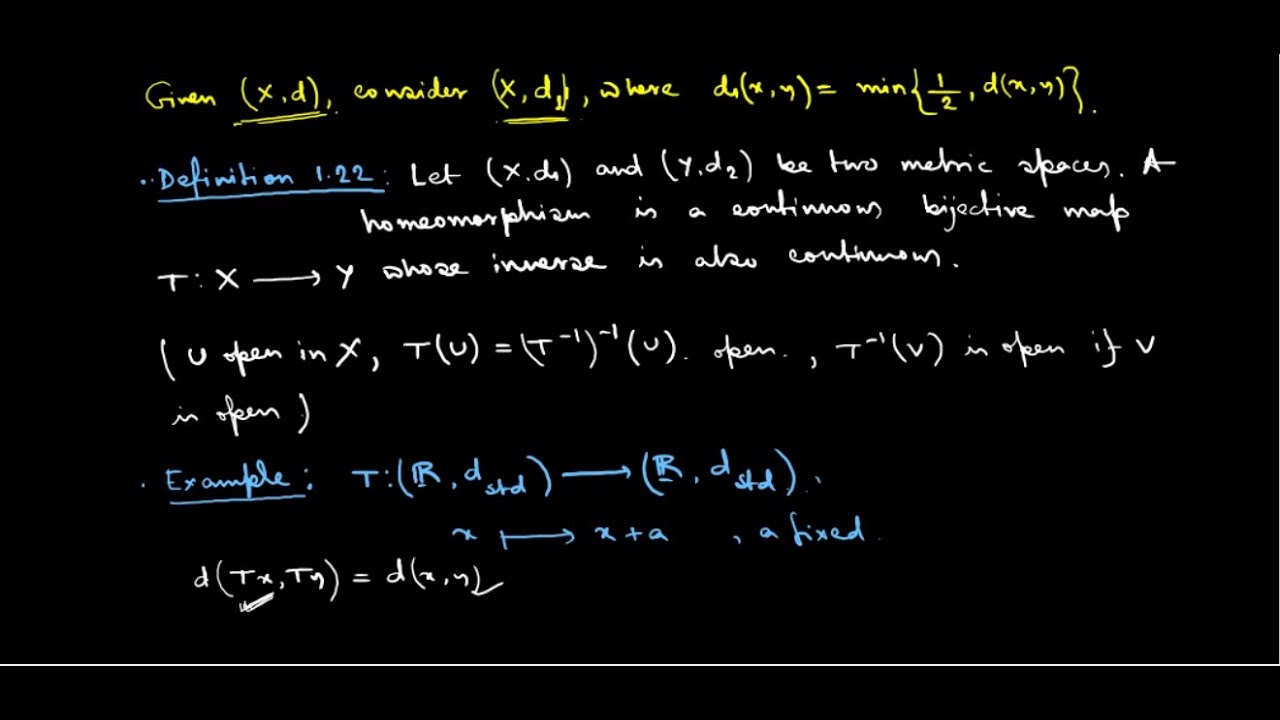 Given (X,d), consider (X,d₁), where d₁(x,y) = min{1/2, d(x,y)}.
Definition 1.22: Let (X,d₁) and (Y,d₂) be two metric spaces. A
homeomorphism is a continuous bijective map
T: X ⟶ Y whose inverse is also continuous.
(U open in X, T(U) = (T⁻¹)⁻¹(U). open., T⁻¹(V) is open if V
is open)
Example: T: (ℝ, d_std) ⟶ (ℝ, d_std),
x ⟼ x+a, a fixed.
d(Tx,Ty) = d(x,y)